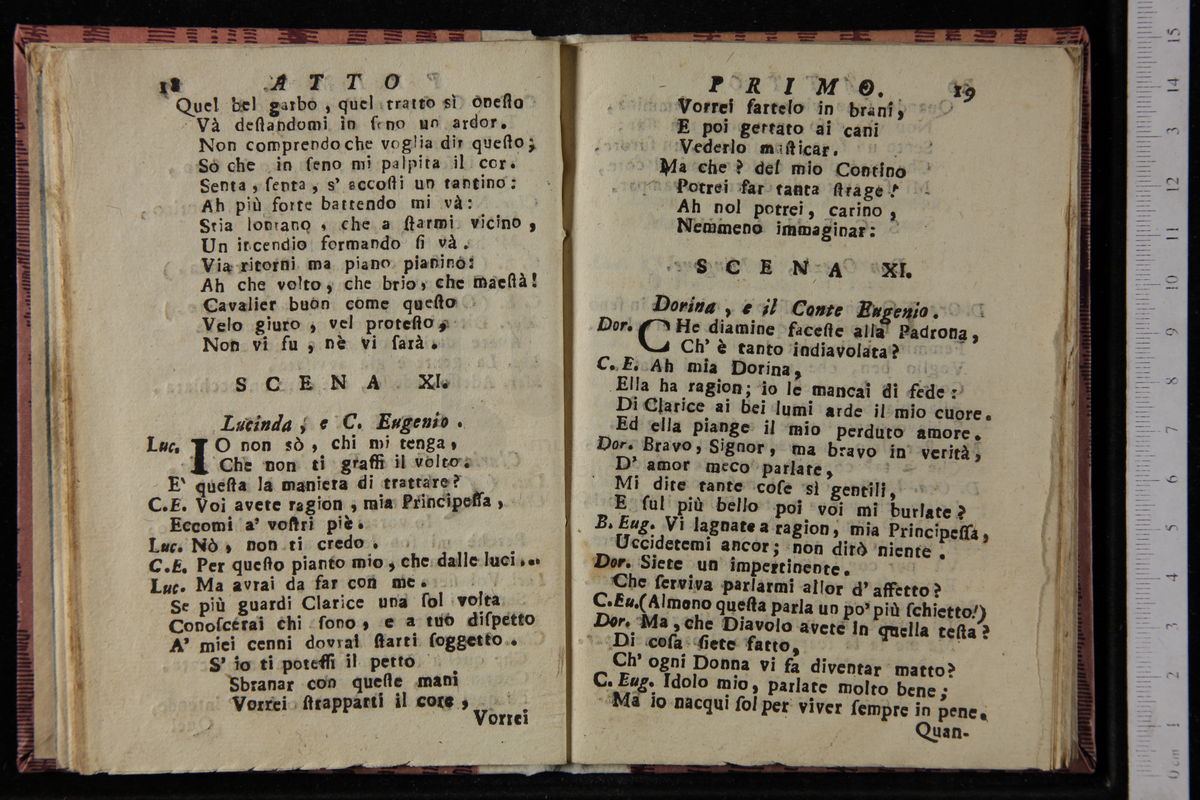 18 ATTO
Quel bel garbo, quel tratto sì onesto
Và destandomi in seno un ardor.
Non comprendo che voglia dir questo;
Sò che in seno mi palpita il cor.
Senta, senta, s' accosti un tantino:
Ah più forte battendo mi và:
Stia lontano, che a starmi vicino,
Un incendio formando si và.
Via ritorni ma piano pianino:
Ah che volto, che brio, che maestà!
Cavalier buon come questo
Velo giuro, vel protesto,
Non vi fu, nè vi sarà.
SCENA XI.
Lucinda, e C. Eugenio.
Luc. IO non sò, chi mi tenga,
Che non ti graffi il volto.
E' questa la maniera di trattare?
C.E. Voi avete ragion, mia Principessa,
Eccomi a' vostri piè.
Luc. Nò, non ti credo.
C.E. Per questo pianto mio, che dalle luci....
Luc. Ma avrai da far con me.
Se più guardi Clarice una sol volta
Conoscerai chi sono, e a tuo dispetto
A' miei cenni dovrai starti soggetto.
S' io ti potessi il petto
Sbranar con queste mani
Vorrei strapparti il core,
Vorrei
PRIMO. 19
Vorrei fartelo in brani,
E poi gettato ai cani
Vederlo masticar.
Ma che? del mio Contino
Potrei far tanta strage!
Ah nol potrei, carino,
Nemmeno immaginar:
SCENA XI.
Dorina, e il Conte Eugenio.
Dor. CHe diamine faceste alla Padrona,
Ch' è tanto indiavolata?
C. E. Ah mia Dorina,
Ella ha ragion; io le mancai di fede:
Di Clarice ai bei lumi arde il mio cuore.
Ed ella piange il mio perduto amore.
Dor. Bravo, Signor, ma bravo in verità,
D' amor meco parlate,
Mi dite tante cose sì gentili,
E sul più bello poi voi mi burlate?
B. Eug. Vi lagnate a ragion, mia Principessa,
Uccidetemi ancor; non dirò niente.
Dor. Siete un impertinente.
Che serviva parlarmi allor d' affetto?
C.Eu. (Almeno questa parla un po' più schietto!)
Dor. Ma, che Diavolo avete in quella testa?
Di cosa siete fatto,
Ch' ogni Donna vi fa diventar matto?
C. Eug. Idolo mio, parlate molto bene;
Ma io nacqui sol per viver sempre in pene.
Quan-
0 cm 1 2 3 4 5 6 7 8 9 10 11 12 13 14 15